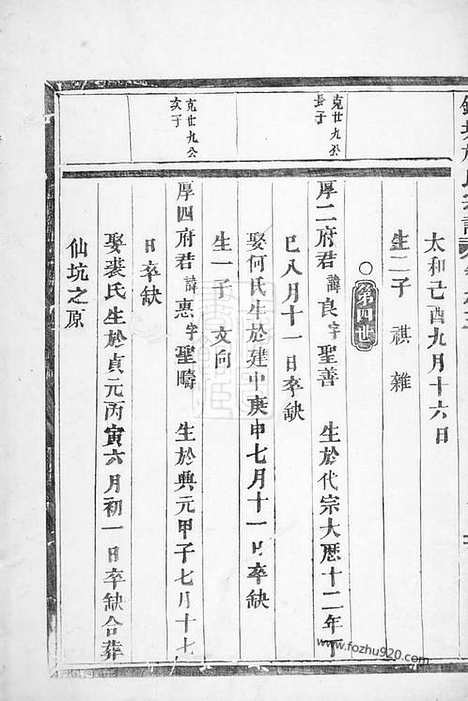 太和己酉九月十六日
生二子 祺 雜
○第四世
克廿九公
長子
厚二府君諱良字聖善 生於代宗大歷十二年丁
巳八月十一日卒缺
娶何氏生於建中庚申七月十一日卒缺
生一子 文向
克廿九公
次子
厚四府君諱惠字聖疇 生於興元甲子七月十七
日卒缺
娶裴氏生於貞元丙寅六月初一日卒缺合葬
仙坑之原
www.fozhu920.com